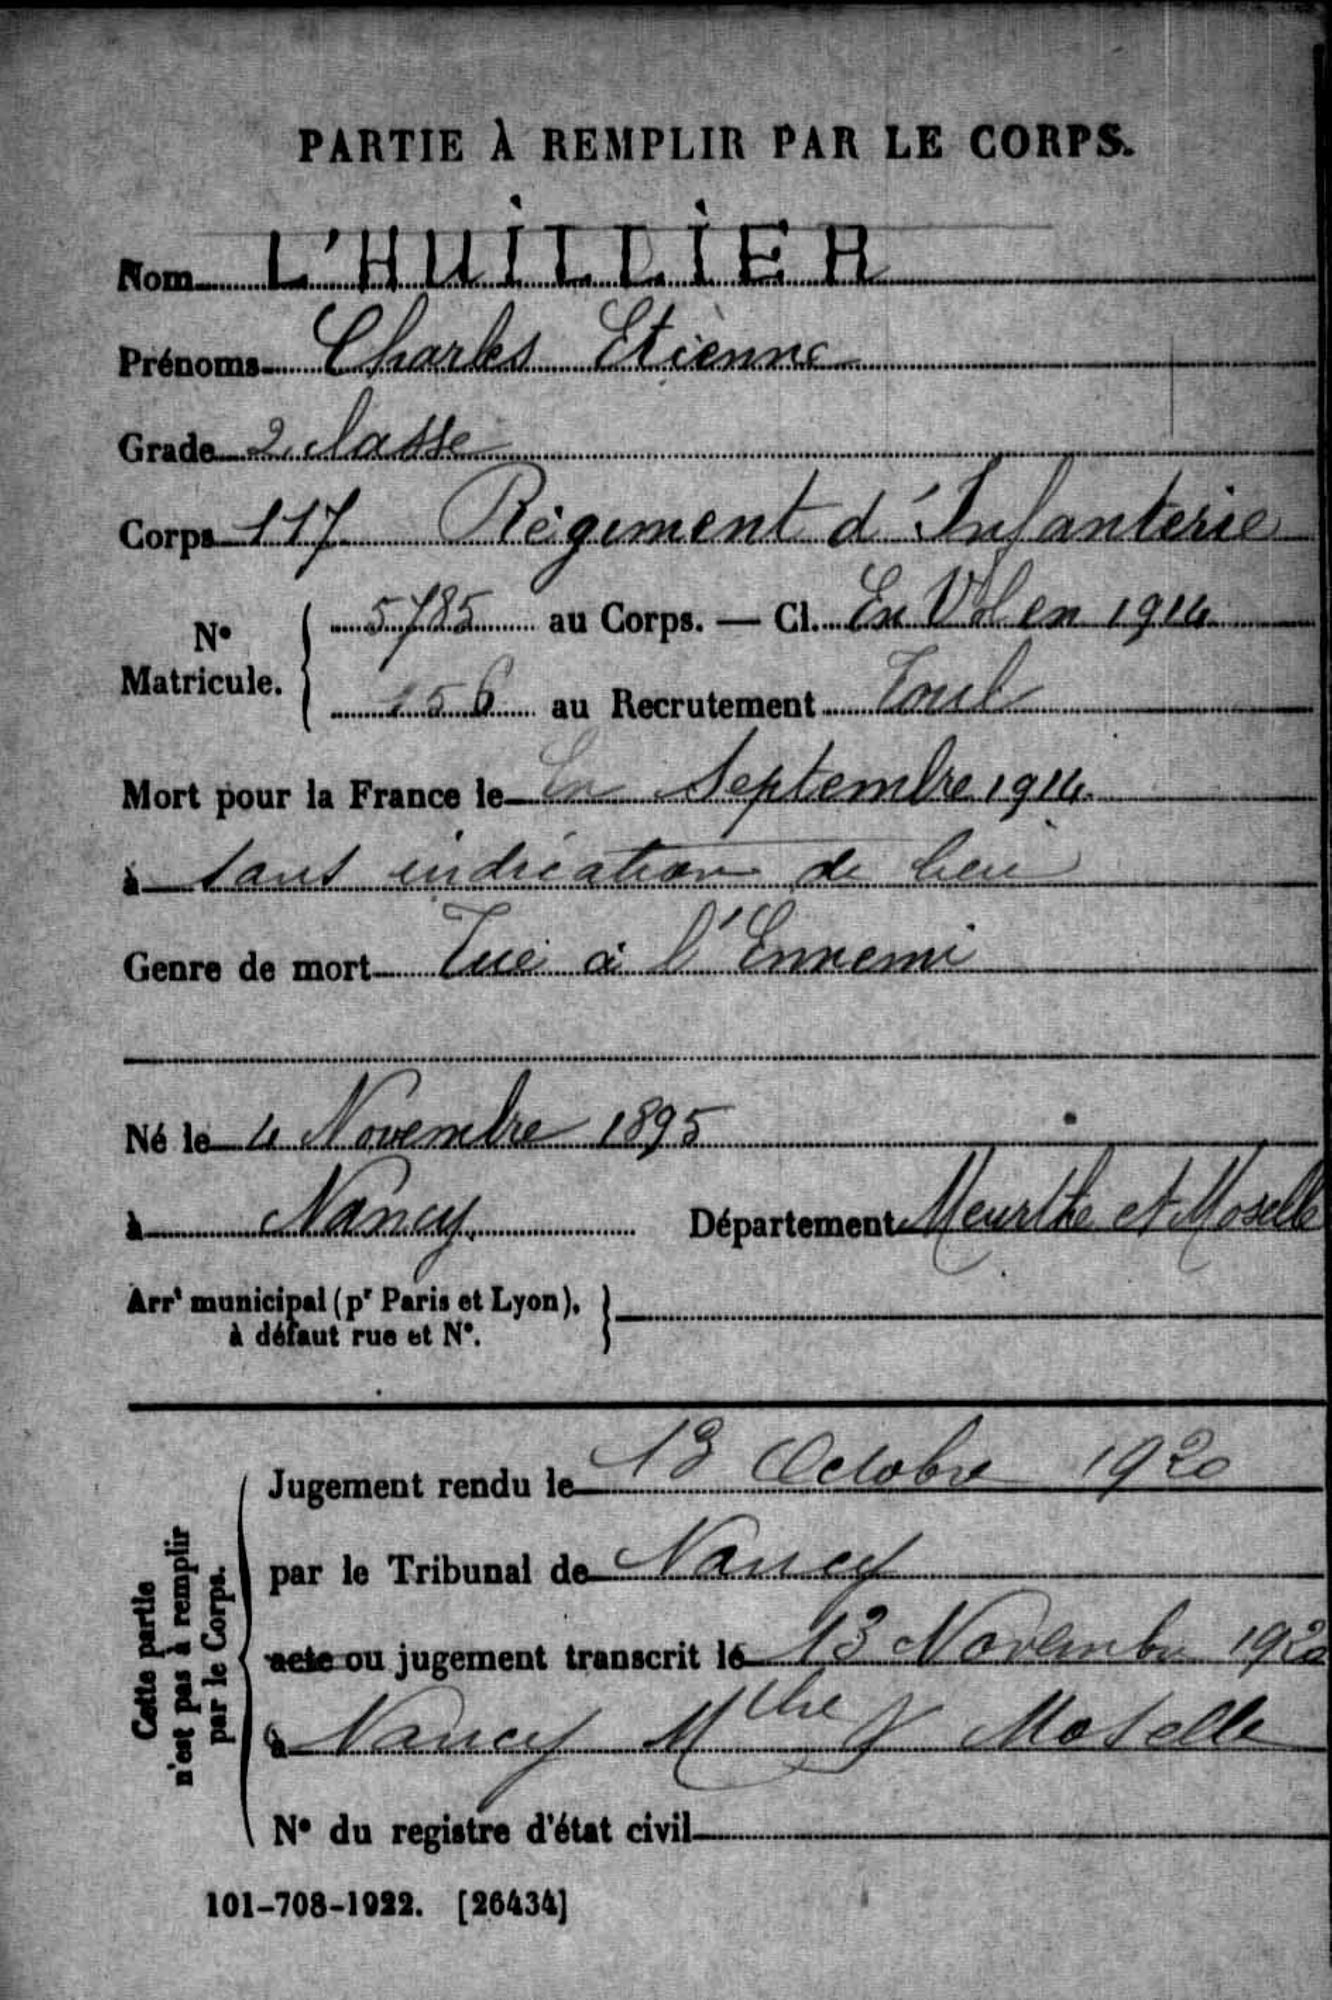 PARTIE À REMPLIR PAR LE CORPS.
Nom L'HUILLIER
Prénoms Charles Etienne
Grade 2 classe
Corps 117 Régiment d'Infanterie
N° Matricule. 5785 au Corps. — Cl. En Vol en 1914
156 au Recrutement Toul
Mort pour la France le En Septembre 1914
à sans indication de lieu
Genre de mort Tué à l'Ennemi
Né le 4 Novembre 1895
à Nancy Département Meurthe et Moselle
Arrt municipal (pr Paris et Lyon),
à défaut rue et N°.
Cette partie
n'est pas à remplir
par le Corps.
Jugement rendu le 13 Octobre 1920
par le Tribunal de Nancy
acte ou jugement transcrit le 13 Novembre 1920
à Nancy Mthe & Moselle
N° du registre d'état civil
101-708-1922. [26434]